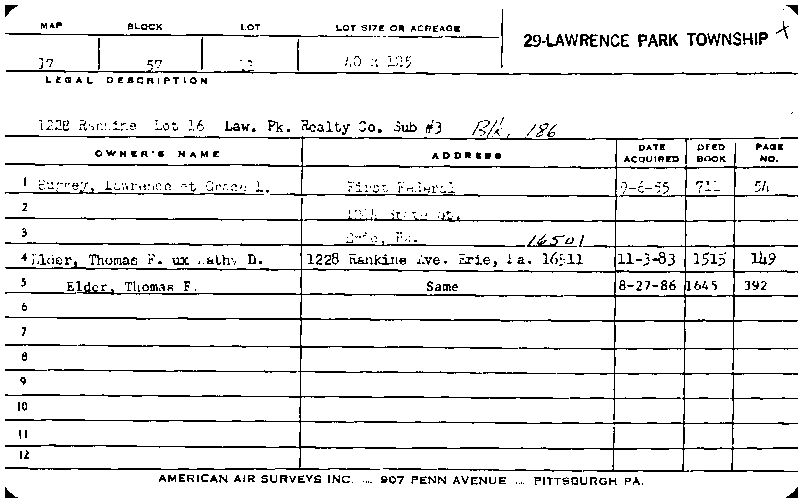 MAP BLOCK LOT LOT SIZE OR ACREAGE
29-LAWRENCE PARK TOWNSHIP
17 57 40 x 125
LEGAL DESCRIPTION
1228 Rankine Lot 16 Law. Pk. Realty Co. Sub #3 Blk. 186
OWNER'S NAME ADDRESS DATE ACQUIRED DEED BOOK PAGE NO.
1 Lawrence et Grace First Federal 9-6-55 711 54
2 State St.
3 Erie, Pa. 16501
4 Elder, Thomas F. ux Kathy D. 1228 Rankine Ave. Erie, Pa. 16511 11-3-83 1515 149
5 Elder, Thomas F. Same 8-27-86 1645 392
6
7
8
9
10
11
12
AMERICAN AIR SURVEYS INC. ... 907 PENN AVENUE ... PITTSBURGH PA.